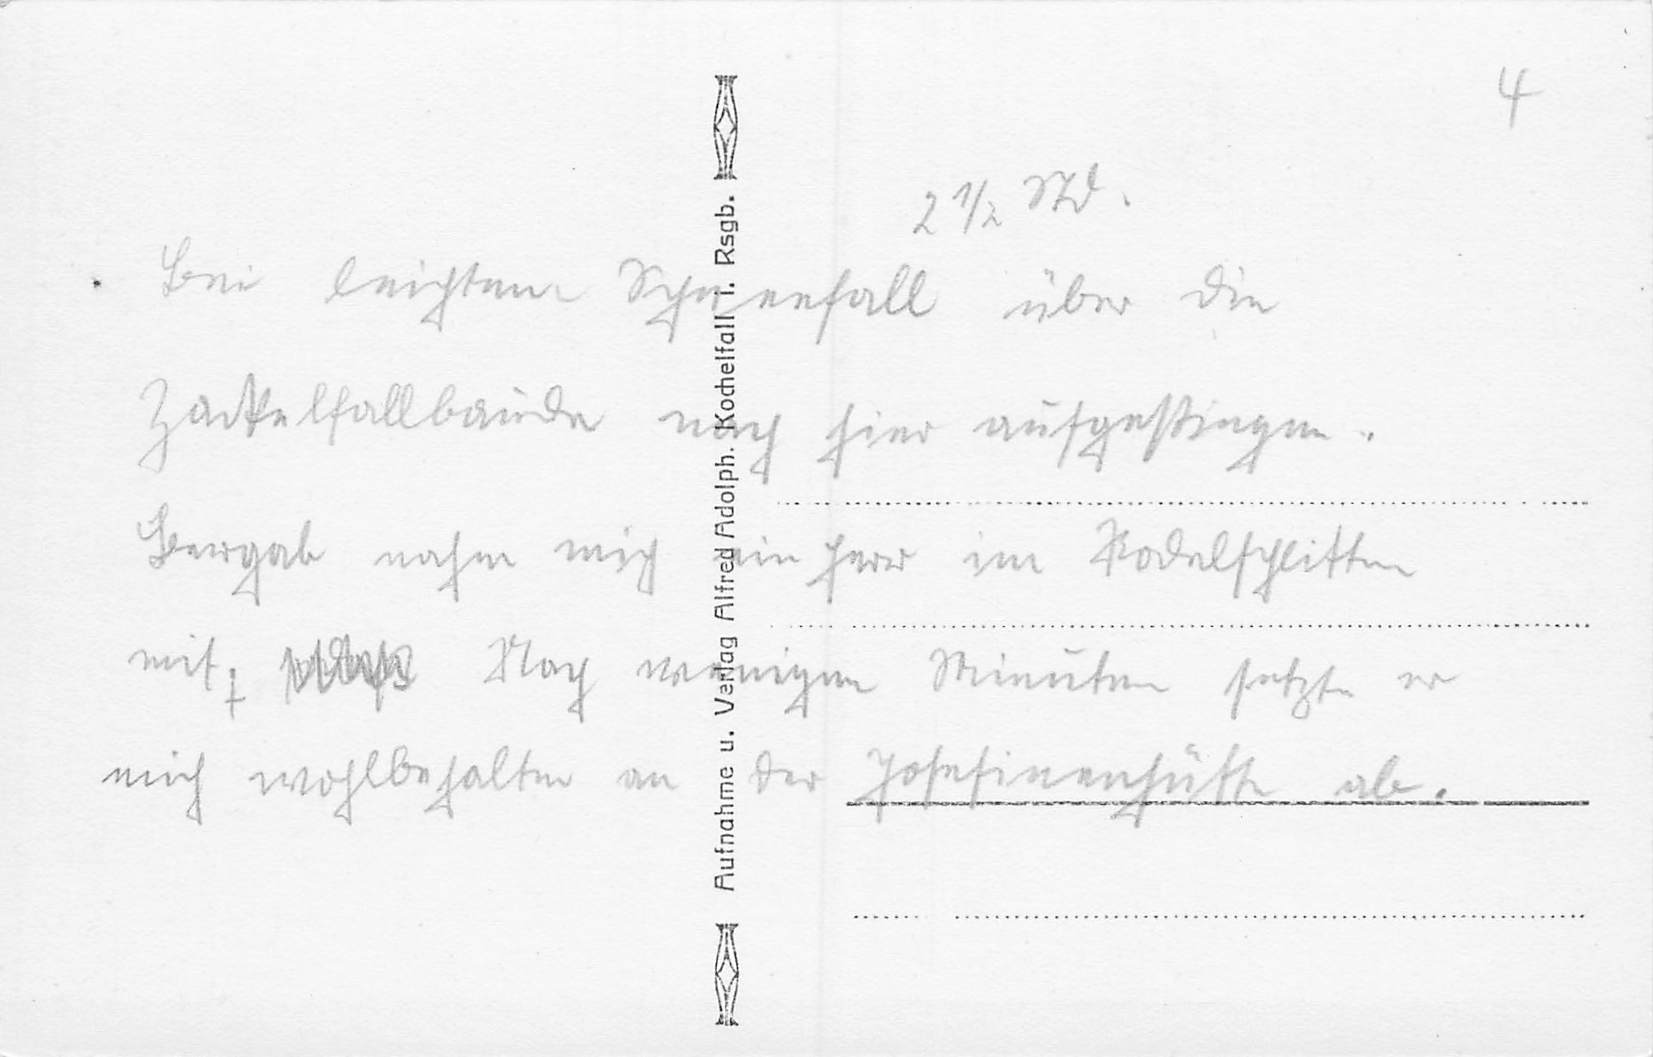 4
2 1/2 Std.
Bei leichtem Schneefall über die
Zackelfallbaude nach hier aufgestiegen.
Bergab nahm mich ein Herr im Rodelschlitten
mit. Nach wenigen Minuten setzte er
mich wohlbehalten an der Josefinenhütte ab.
Aufnahme u. Verlag Alfred Adolph. Kochelfall i. Rsgb.